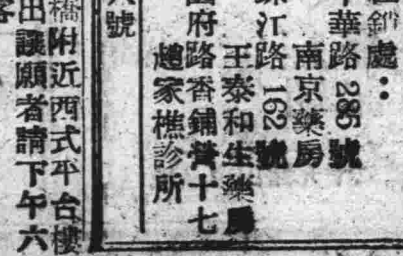 銷處：
華路 285 號
南京藥房
江路 162 號
王泰和生藥房
府路香鋪營十七
趙家樵診所
號
橋附近西式平台樓
出讓願者請下午六